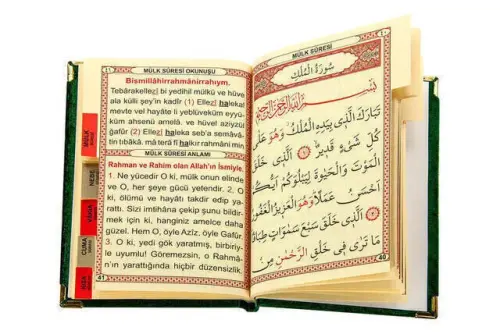 MÜLK SÛRESİ OKUNUŞU
Bismillâhirrahmânirrahıym.
Tebârakellezî bi yedihil mülkü ve hüve
ala külli şey'in kadîr (1) Ellezî halekal
mevte vel hayâte li yeblüveküm eyyü-
küm ahsenü amelâ. ve hüvel azîyzül
ğafûr (2) Ellezî haleka seb'a semâvâ-
tin tıbâkâ. mâ terâ fî halkırrahmâni
MÜLK SÛRESİ ANLAMI
Rahman ve Rahim olan Allah'ın İsmiyle.
1. Ne yücedir O ki, mülk onun elinde
ve O, her şeye gücü yetendir. 2. O
ki, ölümü ve hayatı takdir edip ya-
rattı. Sizi imtihâna çekip şunu bildir-
mek için ki, hanginiz amelce daha
güzel. Hem O, öyle Azîz, öyle Gafûr.
3. O ki, yedi gök yaratmış, birbiriy-
le uyumlu! Göremezsin, o Rahmân-
ın yarattığında hiçbir düzensizlik.
41
MÜLK
NEBE
CUMA
MÜLK SÛRESİ
سُورَةُ الْمُلْكِ
بِسْمِ اللهِ الرَّحْمٰنِ الرَّحِيمِ
تَبَارَكَ الَّذِي بِيَدِهِ الْمُلْكُ وَهُوَ عَلٰى
كُلِّ شَيْءٍ قَدِيرٌ ﴿١﴾ اَلَّذِي خَلَقَ
الْمَوْتَ وَالْحَيٰوةَ لِيَبْلُوَكُمْ اَيُّكُمْ
اَحْسَنُ عَمَلًا وَهُوَ الْعَزِيزُ الْغَفُورُ
﴿٢﴾ اَلَّذِي خَلَقَ سَبْعَ سَمٰوَاتٍ طِبَاقًا
مَا تَرٰى فِي خَلْقِ الرَّحْمٰنِ مِنْ
40